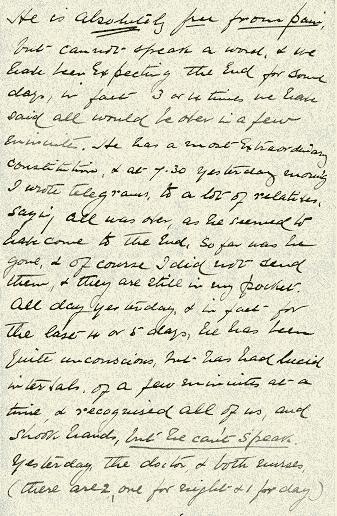 He is absolutely free from pain,
but cannot speak a word, & we
have been expecting the end for some
days, in fact 3 or 4 times we have
said all would be over in a few
minutes. He has a most extraordinary
constitution, & at 7.30 yesterday morning
I wrote telegrams, to a lot of relatives,
saying all was over, as he seemed to
have come to the End, so far was he
gone, & of course I did not send
them, & they are still in my pocket.
All day yesterday, & in fact for
the last 4 or 5 days, he has been
quite unconscious, but has had lucid
intervals, of a few minutes at a
time & recognised all of us, and
shook hands, but he can't speak.
Yesterday, the doctor, & both nurses,
(there are 2, one for night & 1 for day)